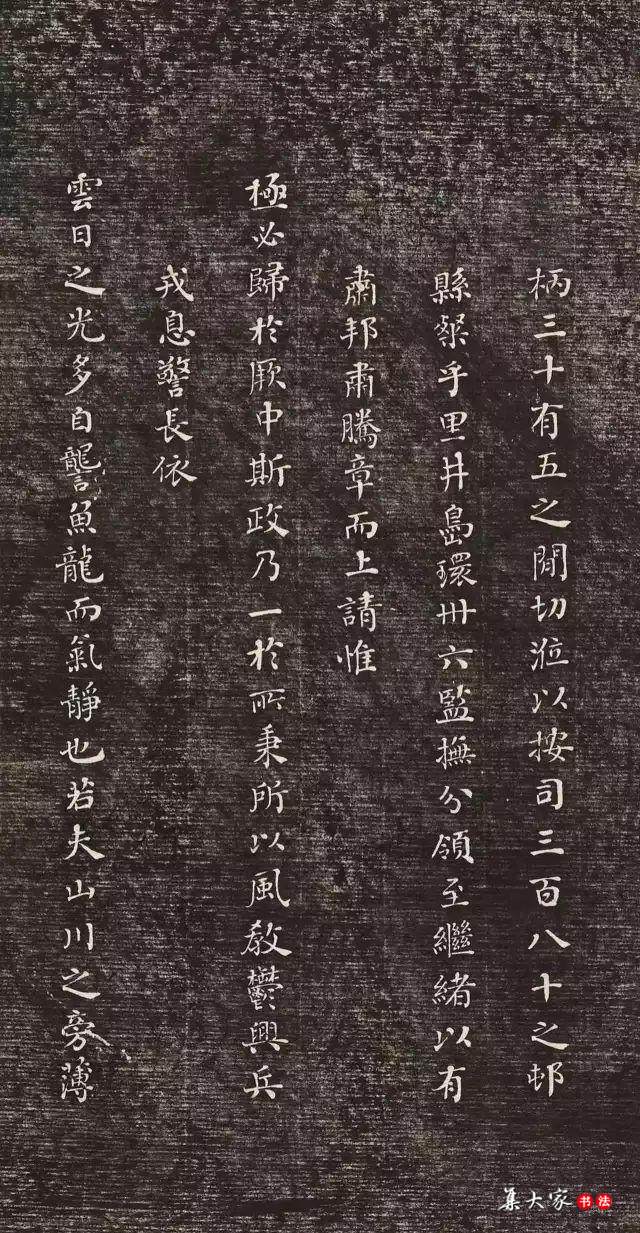 柄三十有五之間切涖以按司三百八十之邨
縣槊乎里井島環卅六監撫分領至繼緒以有
肅邦肅騰章而上請惟
極必歸於厥中斯政乃一於所秉所以風教鬱興兵
戎息警長依
雲日之光多自讋魚龍而氣靜也若夫山川之旁薄
集大家书法